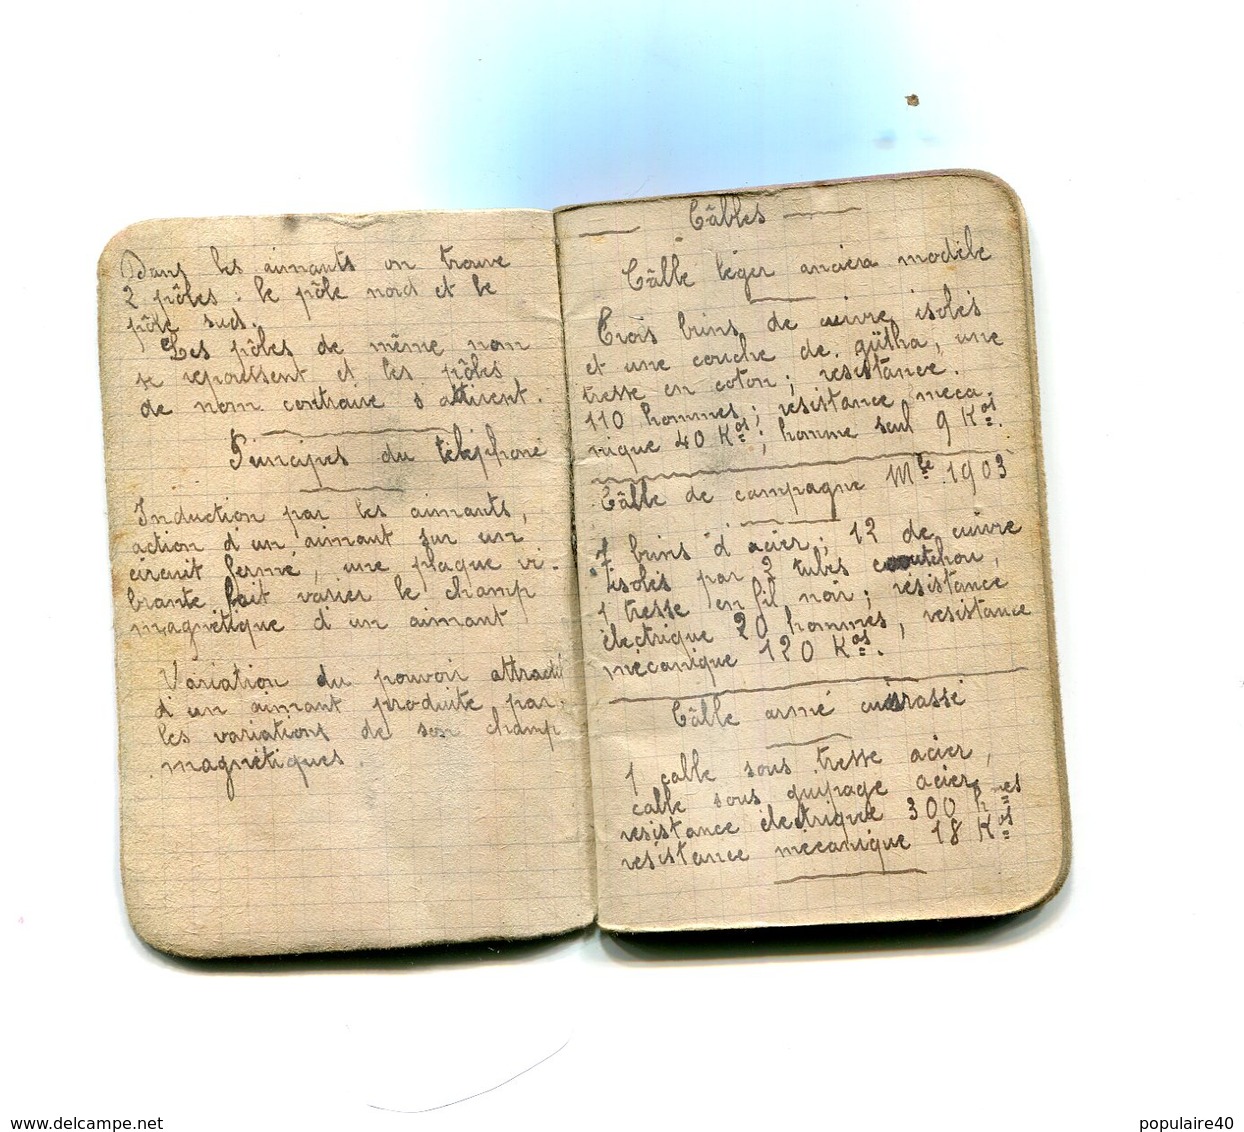 Dans les aimants on trouve
2 pôles : le pôle nord et le
pôle sud.
Les pôles de même nom
se repoussent et les pôles
de nom contraire s'attirent.
Principes du téléphone
Induction par les aimants,
action d'un aimant sur un
circuit fermé, une plaque vi-
brante fait varier le champ
magnétique d'un aimant
Variation du pouvoir attractif
d'un aimant produite par
les variations de son champ
magnétiques.
Câbles
Câble léger ancien modèle
Trois brins de cuivre isolés
et une couche de gütha, une
tresse en coton; resistance.
110 hommes; resistance meca-
nique 40 Kos; homme seul 9 Kos.
Câble de campagne Mle 1903
7 brins d'acier; 12 de cuivre
isolés par 2 tubes caoutchou,
1 tresse en fil noir; résistance
électrique 20 hommes, resistance
mécanique 120 Kos.
Câble armé cuirassé
1 cable sous tresse acier,
cable sous guipage acier,
resistance électrique 300 hmes
resistance mécanique 18 Kos
www.delcampe.net
populaire40